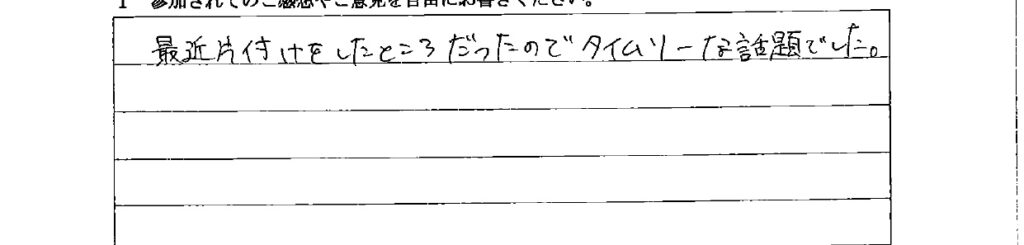 1 参加されてのご感想やご意見を自由にお書きください。
最近片付けをしたところだったのでタイムリーな話題でした。